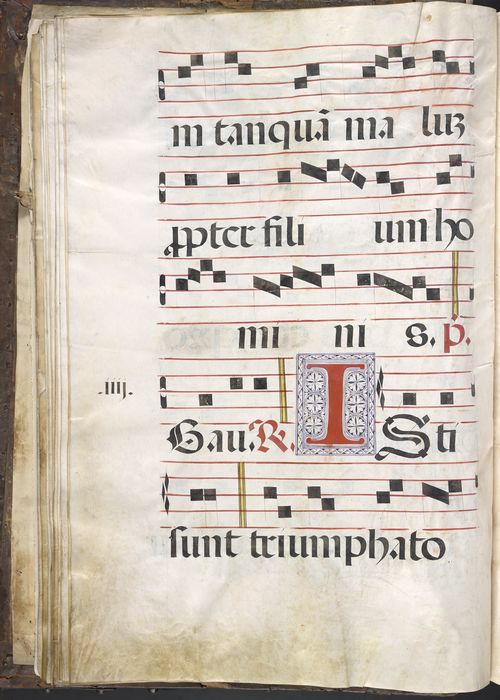 m tanquā ma luꝫ
ꝓpter fili um ho
mi ni s. p̄.
.iiij.
Gau. R. I Sti
sunt triumphato